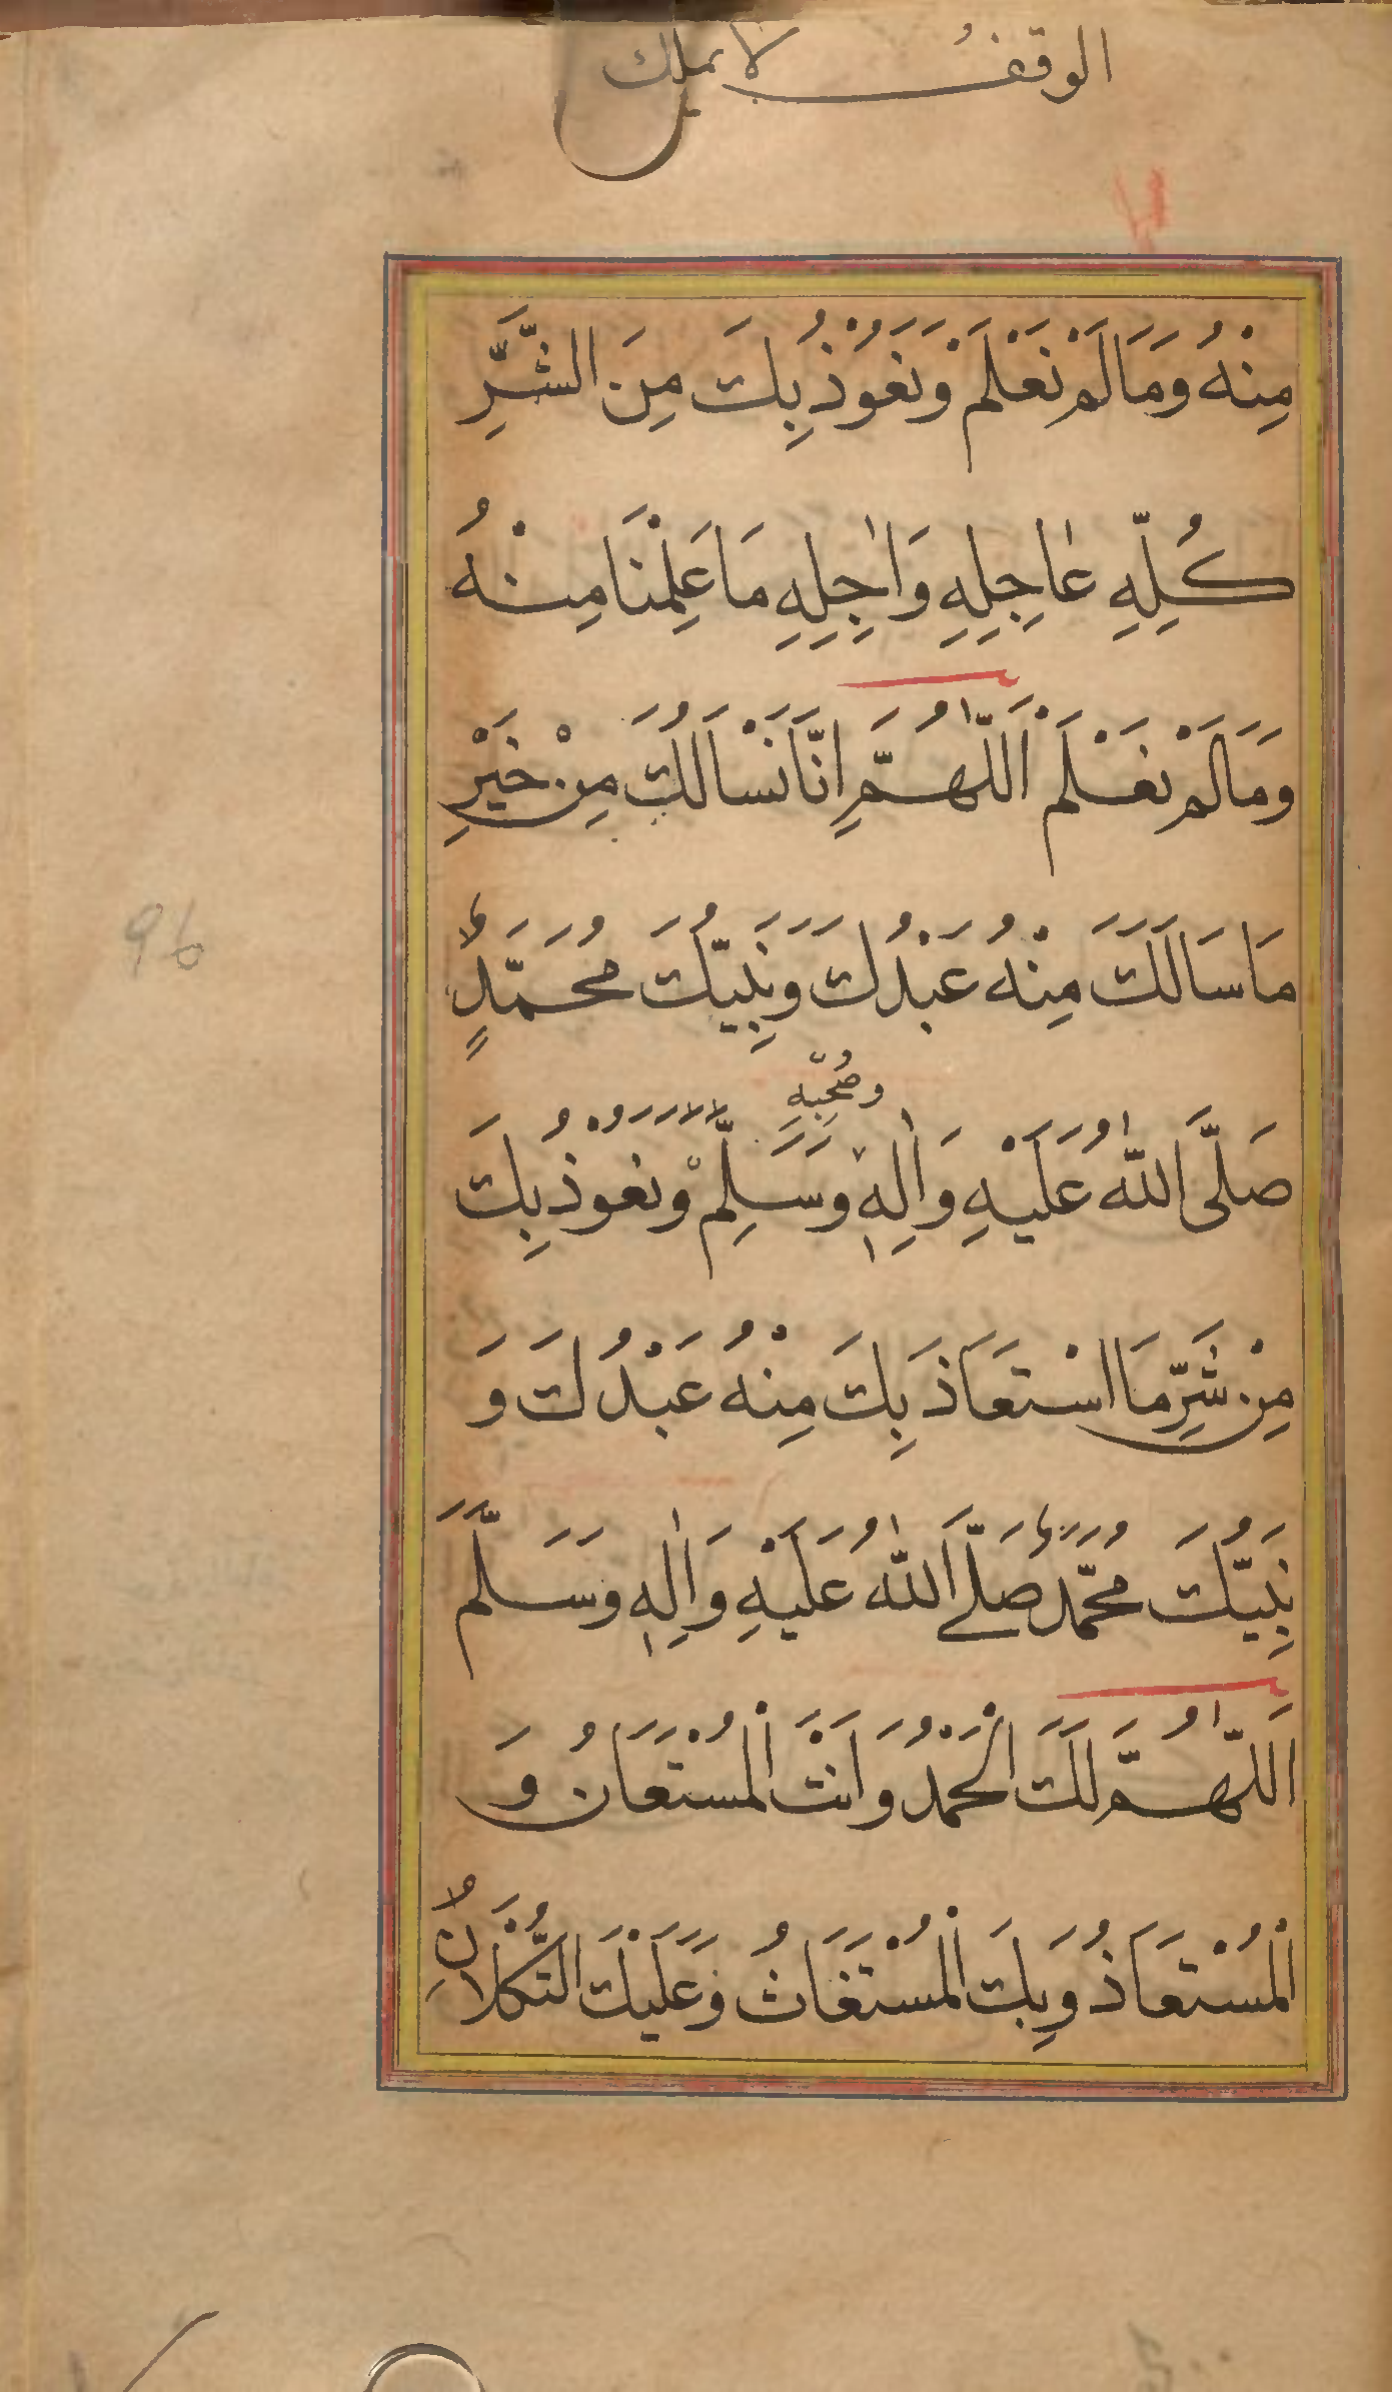 الوقف لا يملك
مِنْهُ وَمَا لَمْ نَعْلَمْ وَنَعُوْذُ بِكَ مِنَ الشَّرِّ
كُلِّهِ عَاجِلِهِ وَاٰجِلِهِ مَا عَلِمْنَا مِنْهُ
وَمَا لَمْ نَعْلَمْ اَللّٰهُمَّ اِنَّا نَسْاَلُكَ مِنْ خَيْرِ
مَا سَاَلَكَ مِنْهُ عَبْدُكَ وَنَبِيُّكَ مُحَمَّدٍ
وصُحِبّهِ
صَلَّى اللّٰهُ عَلَيْهِ وَاٰلِهٖ وَسَلِّمْ وَنَعُوْذُ بِكَ
مِنْ شَرِّ مَا اسْتَعَاذَ بِكَ مِنْهُ عَبْدُكَ وَ
نَبِيُّكَ مُحَمَّدٌ صَلَّى اللّٰهُ عَلَيْهِ وَاٰلِهٖ وَسَلَّمَ
اَللّٰهُمَّ لَكَ الْحَمْدُ وَاَنْتَ الْمُسْتَعَانُ وَ
الْمُسْتَعَاذُ وَبِكَ الْمُسْتَغَاثُ وَعَلَيْكَ التُّكْلَانُ
96